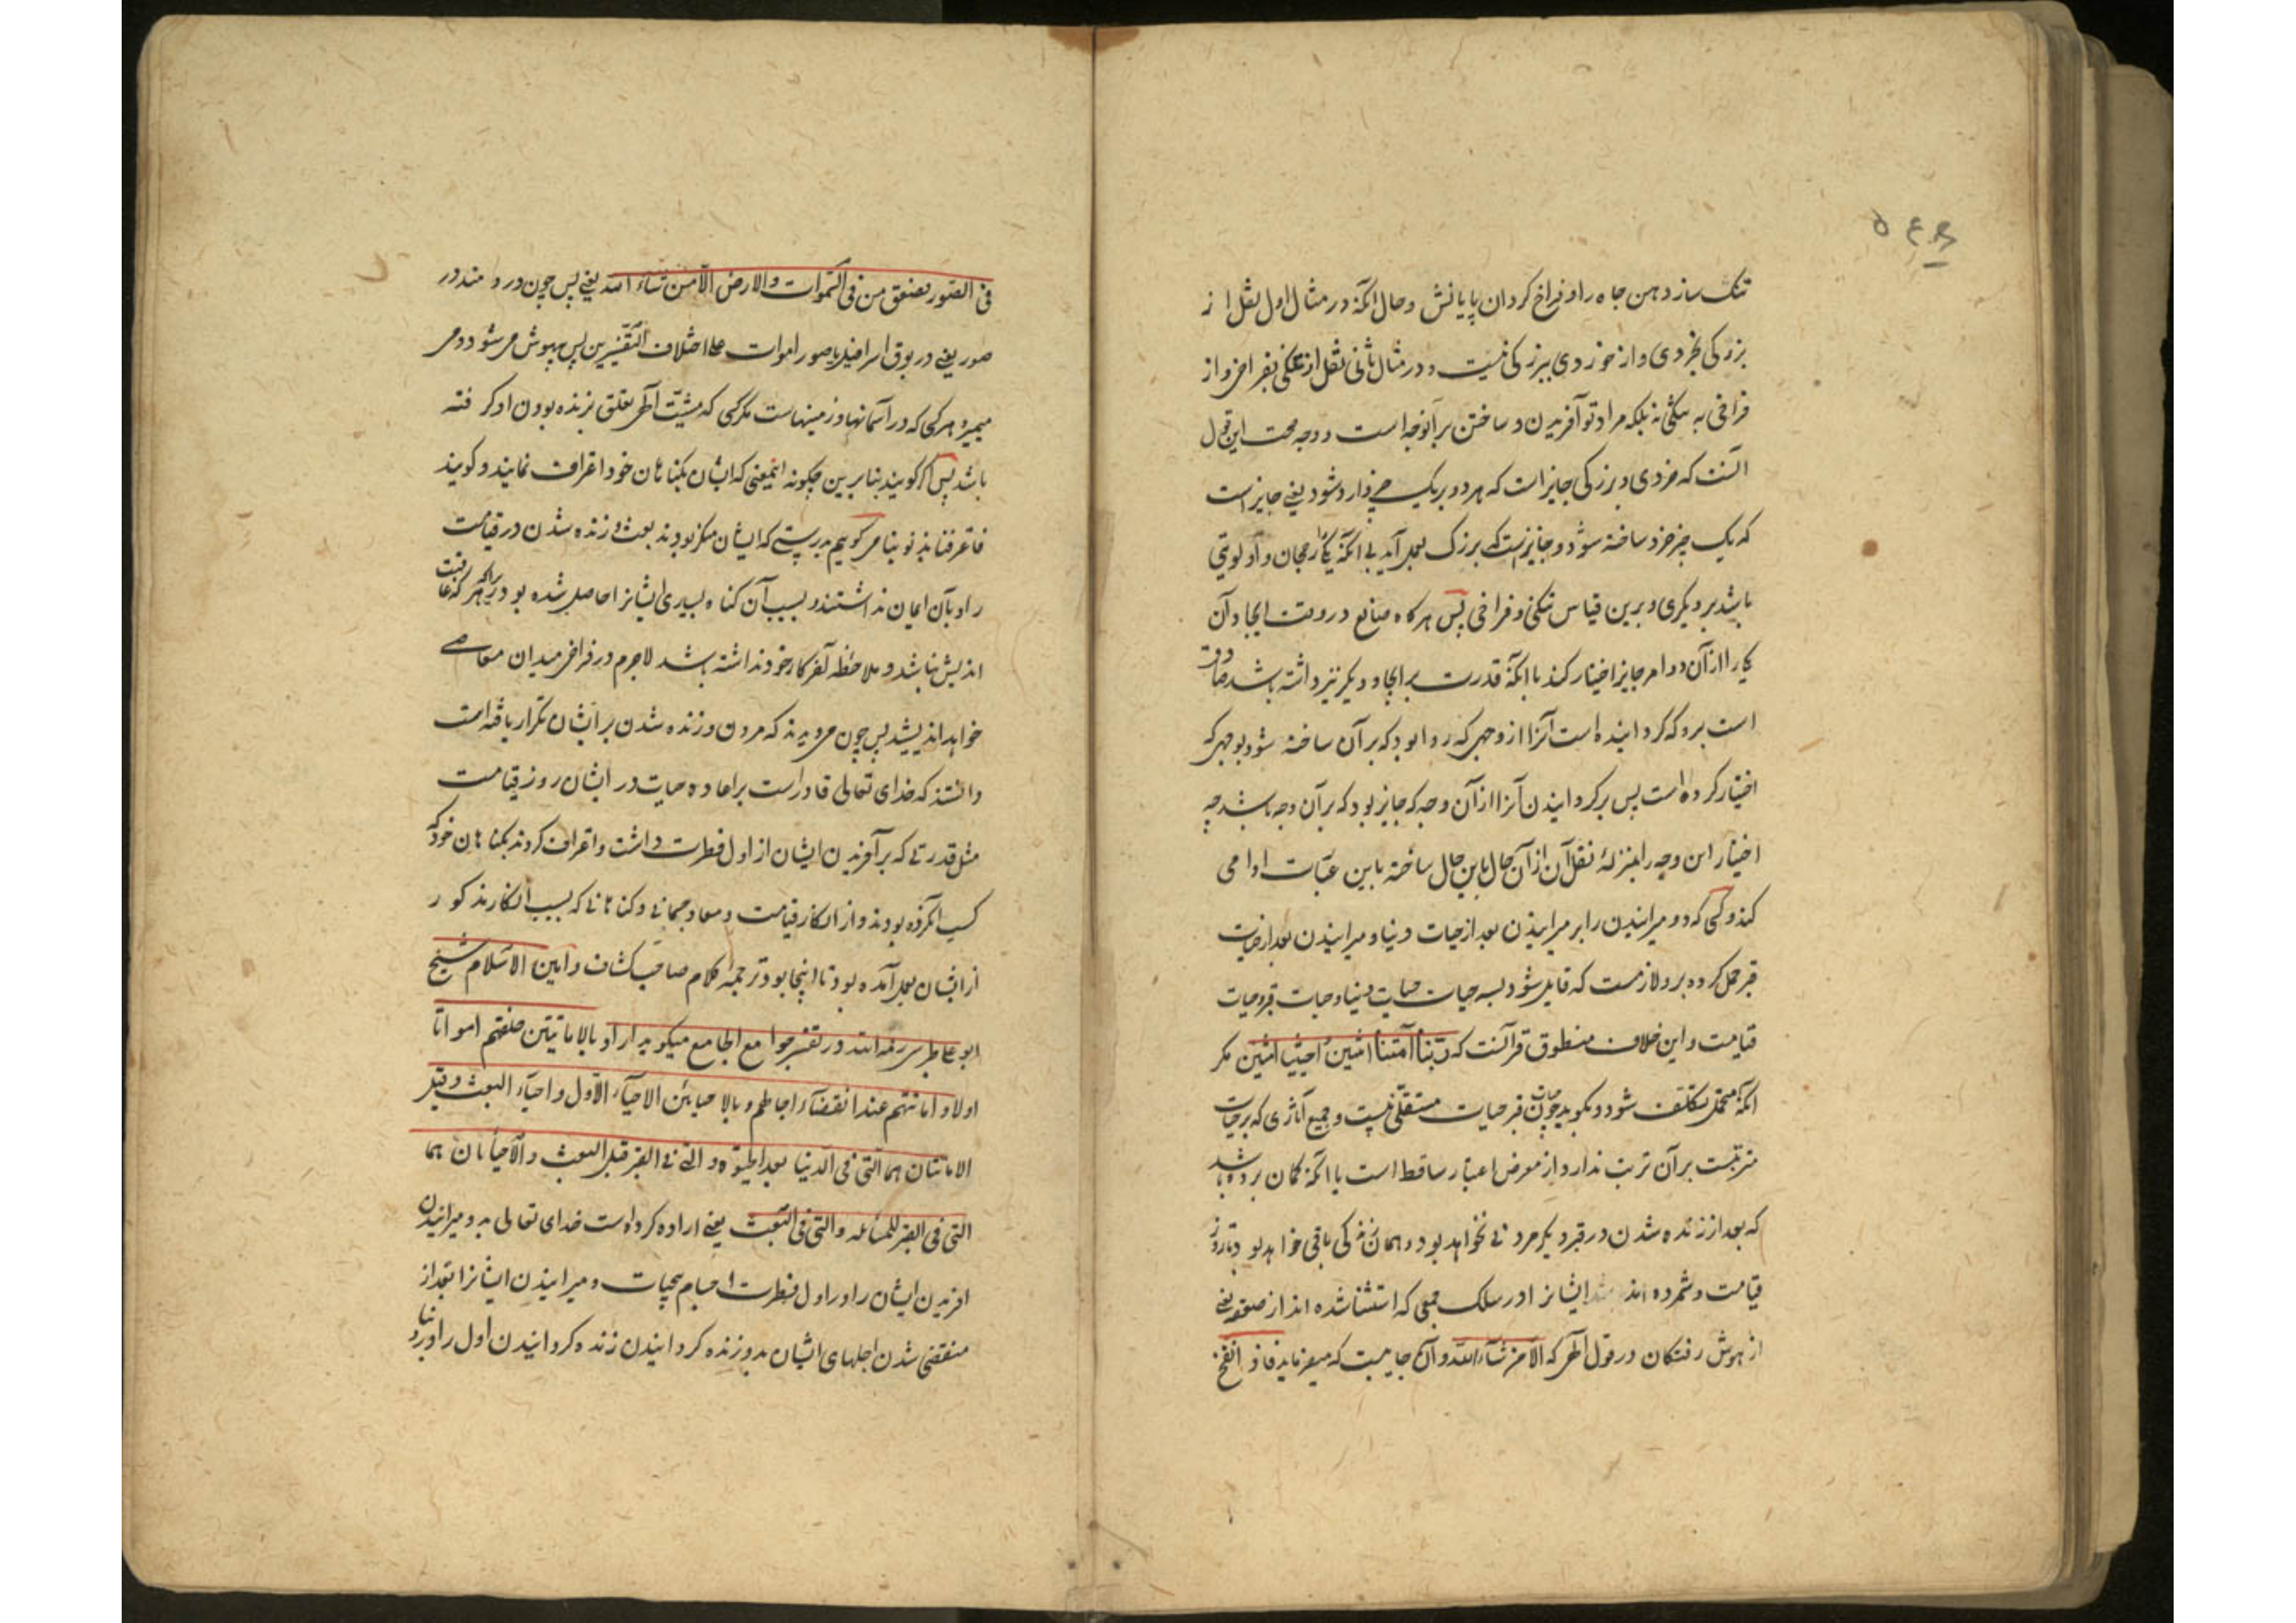 تنک سازد دهن چاه را و فراخ کردان پایانش و حال آنکه در مثال اول نقل از
بزرکی بخردی و از خوردی ببزرکی نیست و در مثال ثانی نقل از تنکی بفراخی و از
فراخی به تنکی نه بلکه مراد تو آفریدن و ساختن بر آنوجه است و وجه صحت این قول
آنست که خردی و بزرکی جایز است که هر دو بر یک چیز وارد شود یعنی جایز است
که یک چیز خرد ساخته شود و جایز است که بزرک بعمل آید بی آنکه یکی را رجحان و اولویتی
باشد بر دیکری و برین قیاس تنکی و فراخی پس هرکاه صانع در وقت ایجاد آن
یکی را از آن دو امر جایز اختیار کند با آنکه قدرت بر ایجاد دیکر نیز داشته باشد صادق
است برو که کردانیده است آنرا از وجهی که روا بود که بر آن ساخته شود بوجهی که
اختیار کرده است پس برکردانیدن آنرا از آن وجه که جایز بود که بر آن وجه باشد چه
اختیار این وجه را بمنزلهٔ نقل آن از آن حال باین حال ساخته باین عبارت ادا می
کند و کسی که دو میرانیدن را بر میرانیدن بعد از حیات دنیا و میرانیدن بعد از حیات
قبر حمل کرده برو لازمست که قایل شود بسه حیات حیات دنیا و حیات قبر و حیات
قیامت و این خلاف منطوق قرآنست که ربنا امتنا اثنین و احییتنا اثنین مکر
آنکه متحمل تکلف شود و بکوید چون حیات قبر حیات مستقلی نیست و جمیع آثاری که بر حیات
مترتبست بر آن ترتب ندارد از معرض اعتبار ساقط است یا آنکه کمان برده باشد
که بعد از زنده شدن در قبر دیکر مردنی نخواهد بود و همان زندکی باقی خواهد بود تا روز
قیامت و شمرده اند ایشانرا در سلک جمعی که استثنا شده اند از صعقه یعنی
از هوش رفتکان در قول الهی که الا من شاء الله و آن جاییست که میفرماید فاذا نفخ
فی الصور فصعق من فی السموات و الارض الا من شاء الله یعنی پس چون در دمند در
صور یعنی در بوق اسرافیل یا صور اموات علی اختلاف التفسیرین پس بیهوش می شود و می
میمیرد هر کسی که در آسمانها و زمینهاست مکر کسی که مشیت الهی تعلق بزنده بودن او کرفته
باشد پس اکر کویند بنا برین چکونه اینمعنی که ایشان بکناهان خود اعتراف نمایند و کویند
فاعترفنا بذنوبنا می کوییم بدرستی که ایشان منکر بودند بعث و زنده شدن در قیامت
را و بآن ایمان نداشتند و بسبب آن کناه بسیاری ایشانرا حاصل شده بود زیرا که هر که عاقبت
اندیش نباشد و ملاحظه آخر کار خود نداشته باشد لاجرم در فراخی میدان معاصی
خواهد اندیشید پس چون میدیدند که مردن و زنده شدن بر ایشان تکرار یافته است
دانستند که خدای تعالی قادر است بر اعاده حیات در ایشان روز قیامت
مثل قدرتی که بر آفریدن ایشان از اول فطرت داشت و اعتراف کردند بکناهان خود که
کسب کرده بودند از انکار قیامت و معاد جسمانی و کناهانی که بسبب انکار مذکور
از ایشان بعمل آمده بود تا اینجا بود ترجمهٔ کلام صاحب کشاف و امین الاسلام شیخ
ابو علی طبرسی رحمه الله در تفسیر جوامع الجامع میکوید اراد بالاماتتین خلقتهم امواتا
اولا و اماتتهم عند انقضاء اجالهم و بالاحیائین الاحیاء الاول و احیاء البعث و قیل
الاماتتان هما التی فی الدنیا بعد الحیوة و التی فی القبر قبل البعث و الاحیاءان هما
التی فی القبر للمسائله و التی فی البعث یعنی اراده کرده است خدای تعالی بدو میرانیدن
آفریدن ایشان را در اول فطرت اجسام بیحیات و میرانیدن ایشانرا بعد از
منقضی شدن اجلهای ایشان بدو زنده کردانیدن زنده کردانیدن اول را در دنیا